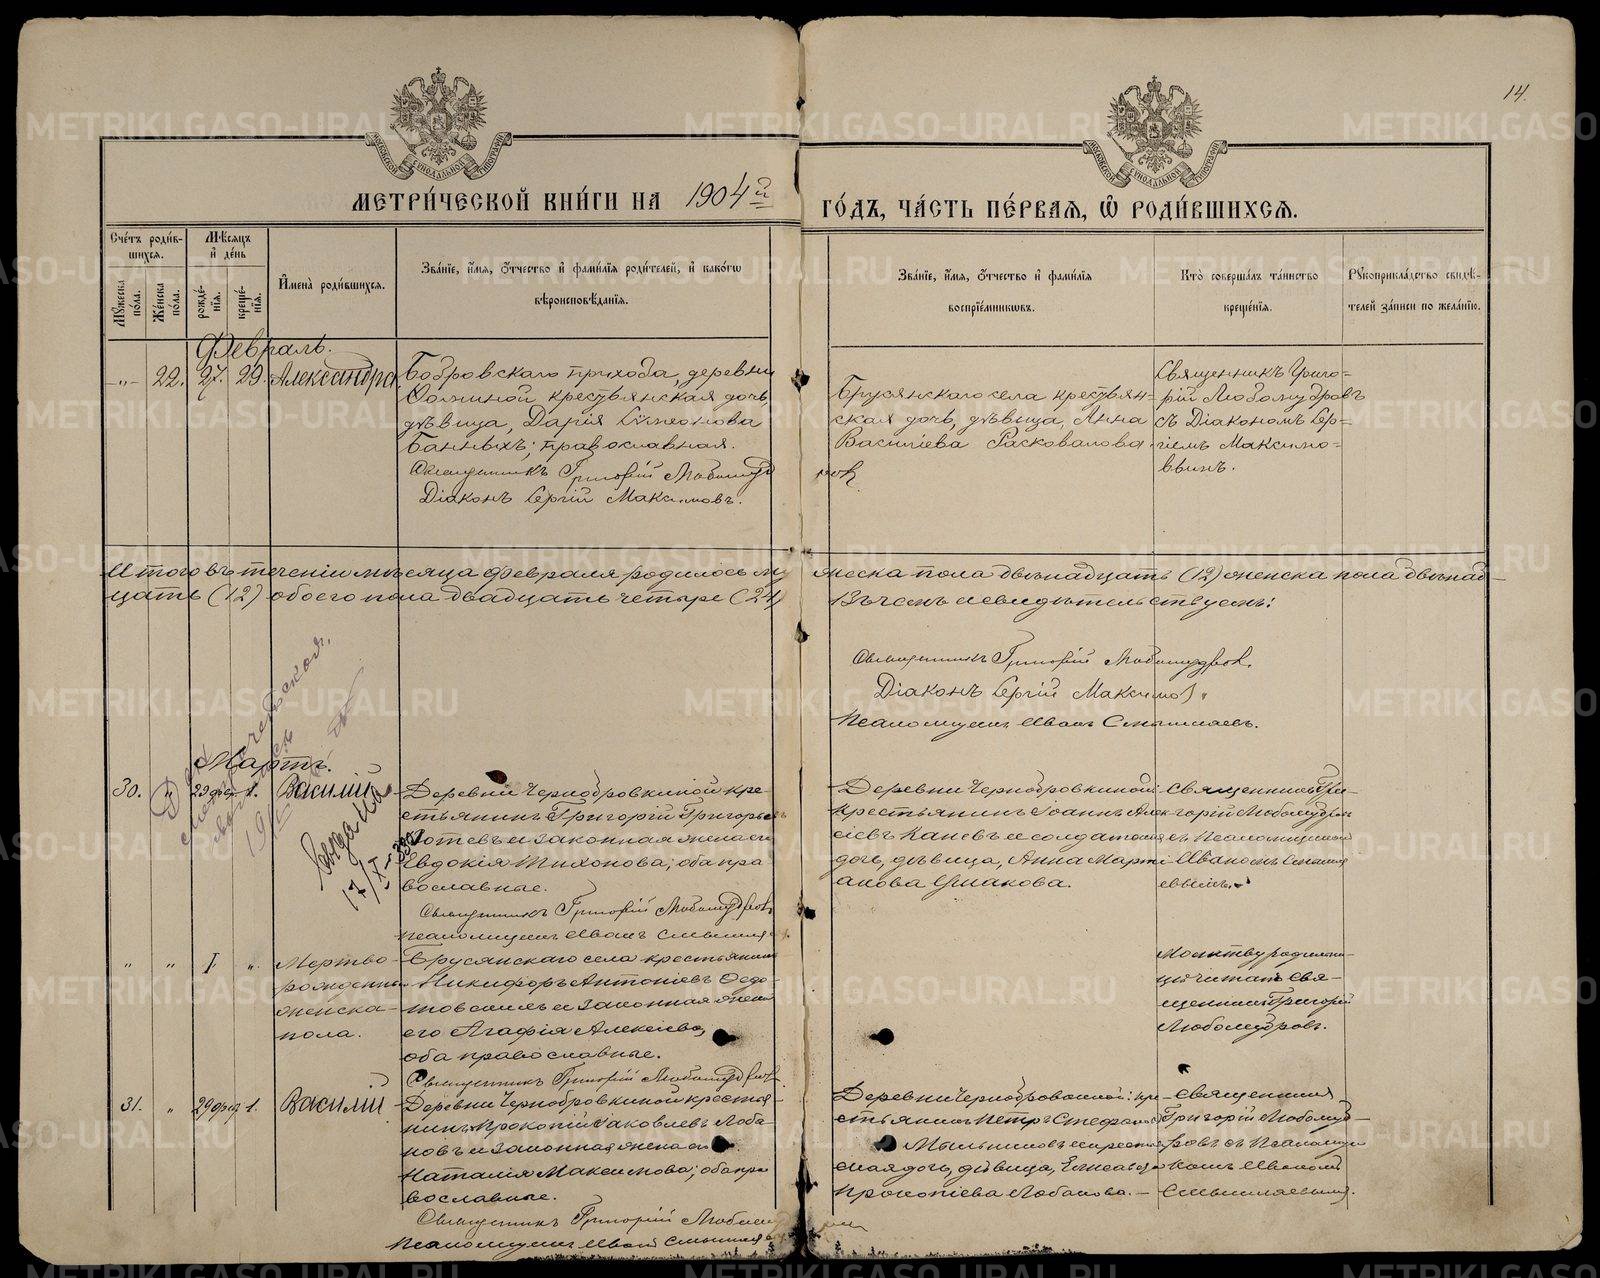 14.
МОСКОВСКОЙ СѴНОДАЛЬНОЙ ТИПОГРАФІИ
МОСКОВСКОЙ СѴНОДАЛЬНОЙ ТИПОГРАФІИ
МЕТРИ́ЧЕСКОЙ КНИ́ГИ НА 1904й
ГО́ДЪ, ЧА́СТЬ ПЕ́РВАЯ, Ѡ РОДИ́ВШИХСЯ.
Сче́тъ роди́вшихся.
Мꙋжеска по́ла.
Же́нска по́ла.
Мѣ́сяцъ и҆ де́нь
рожде́нїя.
креще́нїя.
И҆мена̀ роди́вшихся.
Зва́нїе, и҆́мя, ѻ҆́тчество и҆ фами́лїя роди́телей, и҆ како́гѡ
вѣроисповѣ́данїя.
Зва́нїе, и҆́мя, ѻ҆́тчество и҆ фами́лїя
воспрїе́мникѡвъ.
Кто̀ соверша́лъ та́инство
креще́нїя.
Рꙋкоприкла́дство свидѣ́-
телей за́писи по жела́нїю.
Февраль.
-„- 22. 27. 29. Александра
Бобровскаго прихода, деревни
крестьянская дочь,
дѣвица, Дарія Сѵмеонова
Банныхъ; православная.
Священникъ Григорій Любомудр
Діаконъ Сергій Максимовъ.
Брусянскаго села крестьян-
ская дочь, дѣвица, Анна
Василіева Расковалова.
Священникъ Григо-
рій Любомудровъ
съ Діакономъ Сер-
гіемъ Максимо-
вымъ.
Итого въ теченіи мѣсяца Февраля родилось му
жеска пола двѣнадцать (12) женска пола двѣнад-
цать (12) обоего пола двадцать четыре (24)
Въ чемъ и свидѣтельствуемъ:
Священникъ Григорій Любомудровъ.
Діаконъ Сергій Максимовъ.
Псаломщикъ Иванъ Смышляевъ.
Мартъ.
30. „ 29 фев 1. Василій
Выдана
17/X
Деревни Чернобровкиной кре-
стьянинъ Григорій Григорьев
и законная жена его
Евдокія Тихонова; оба пра
вославные.
Священникъ Григорій Любомудровъ
Псаломщикъ Иванъ Смышляе
Деревни Чернобровкиной
крестьянинъ Іоаннъ Алек
сіевъ Каневъ и солдатская
дочь, дѣвица, Анна Марті
анова Ушакова.
Священникъ Гри-
горій Любомудров
съ Псаломщикомъ
Иваномъ Смышля
евымъ.
„ „ 1. „ Мертво-
рожденный
женска
пола.
Брусянскаго села крестьянинъ
Никифоръ Антоніевъ Федо
товскихъ и законная жена
его Агафія Алексіева,
оба православные.
Священникъ Григорій Любомудровъ
Молитву родильни
цѣ читалъ Свя-
щенникъ Григорій
Любомудровъ.
31. „ 29 фев 1. Василій
Деревни Чернобровкиной крестья-
нинъ Прокопій Іаковлевъ Лоба-
новъ и законная жена его
Наталія Максимова; оба пра
вославные.
Священникъ Григорій Любому
Псаломщикъ Иванъ Смышляе
Деревни Чернобровкиной: кре-
стьянинъ Петръ Стефановъ
Мыльниковъ и крестьян
ская дочь, дѣвица, Елисавета
Прокопіева Лобанова.
Священникъ
Григорій Любомуд-
ровъ съ Псаломщи
комъ Иваномъ
Смышляевымъ.
METRIKI.GASO-URAL.RU